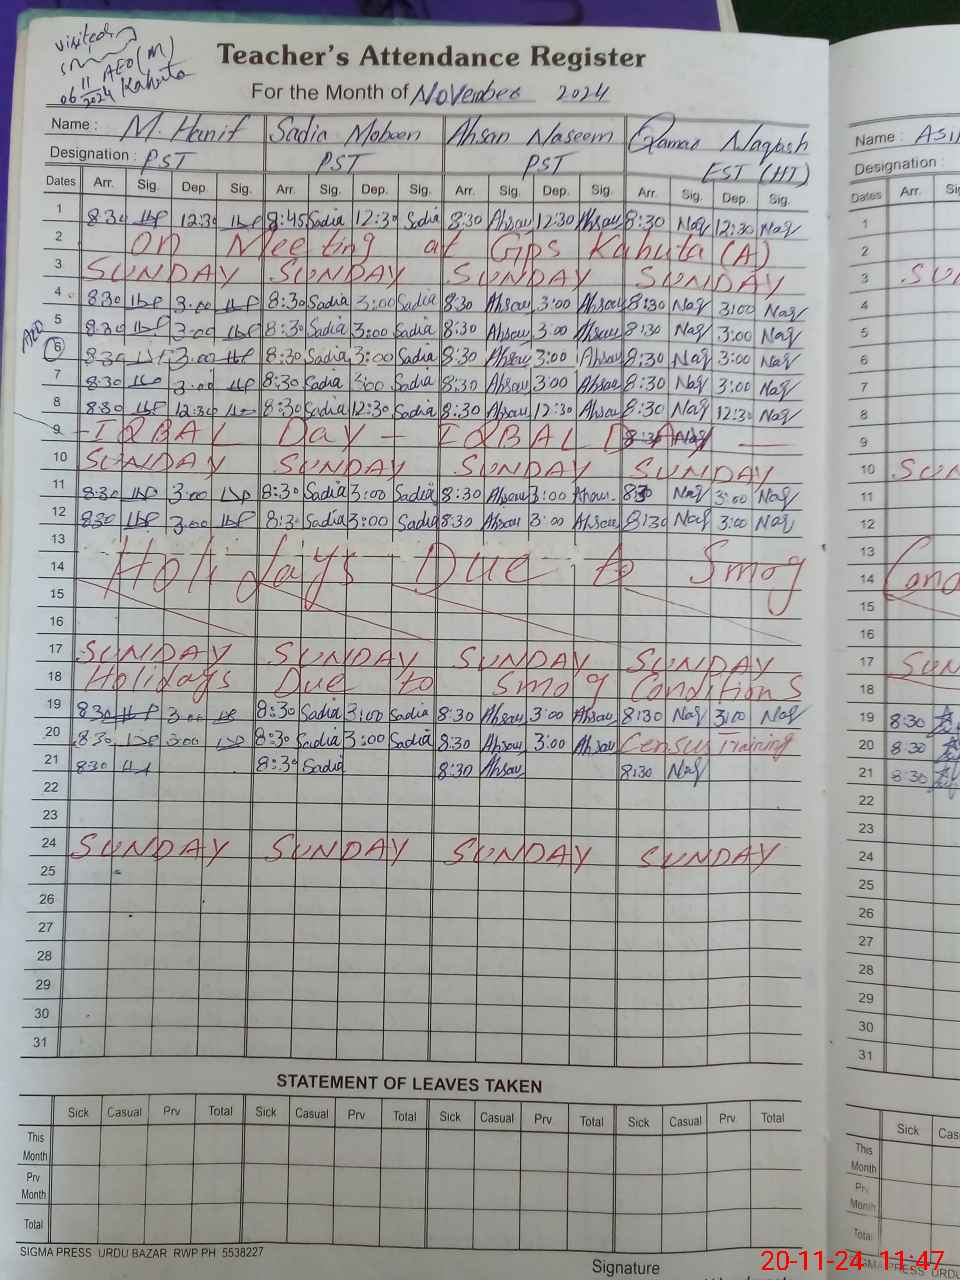 visited
AEO(M)
06/11/2024 Kahuta
Teacher's Attendance Register
For the Month of November 2024
Name : M. Hanif Sadia Mobeen Ahsan Naseem Qamar Naqash
Designation : PST PST PST EST (HT)
Dates Arr. Sig. Dep. Sig. Arr. Sig. Dep. Sig. Arr. Sig. Dep. Sig. Arr. Sig. Dep. Sig.
1 8:30 12:30 8:45 Sadia 12:30 Sadia 8:30 Ahsan 12:30 Ahsan 8:30 Naq 12:30 Naq
2 On Meeting at Gips Kahuta (A)
3 SUNDAY SUNDAY SUNDAY SUNDAY
4 8:30 3:00 8:30 Sadia 3:00 Sadia 8:30 Ahsan 3:00 Ahsan 8:30 Naq 3:00 Naq
5 8:30 3:00 8:30 Sadia 3:00 Sadia 8:30 Ahsan 3:00 Ahsan 8:30 Naq 3:00 Naq
AEO 6 8:30 3:00 8:30 Sadia 3:00 Sadia 8:30 Ahsan 3:00 Ahsan 8:30 Naq 3:00 Naq
7 8:30 3:00 8:30 Sadia 3:00 Sadia 8:30 Ahsan 3:00 Ahsan 8:30 Naq 3:00 Naq
8 8:30 12:30 8:30 Sadia 12:30 Sadia 8:30 Ahsan 12:30 Ahsan 8:30 Naq 12:30 Naq
9 - IQBAL Day - IQBAL DAY —
10 SUNDAY SUNDAY SUNDAY SUNDAY
11 8:30 3:00 8:30 Sadia 3:00 Sadia 8:30 Ahsan 3:00 Ahsan 8:30 Naq 3:00 Naq
12 8:30 3:00 8:30 Sadia 3:00 Sadia 8:30 Ahsan 3:00 Ahsan 8:30 Naq 3:00 Naq
13
14 Holidays Due to Smog
15
16
17 SUNDAY SUNDAY SUNDAY SUNDAY
18 Holidays Due to Smog Conditions
19 8:30 3:00 8:30 Sadia 3:00 Sadia 8:30 Ahsan 3:00 Ahsan 8:30 Naq 3:00 Naq
20 8:30 3:00 8:30 Sadia 3:00 Sadia 8:30 Ahsan 3:00 Ahsan Census Training
21 8:30 8:30 Sadia 8:30 Ahsan 8:30 Naq
22
23
24 SUNDAY SUNDAY SUNDAY SUNDAY
25
26
27
28
29
30
31
STATEMENT OF LEAVES TAKEN
Sick Casual Prv Total Sick Casual Prv Total Sick Casual Prv Total Sick Casual Prv. Total
This Month
Prv Month
Total
SIGMA PRESS URDU BAZAR RWP PH 5538227
Signature
Name :
Designation :
Dates Arr.
1
2
3
4
5
6
7
8
9
10
11
12
13
14
15
16
17
18
19 8:30
20 8:30
21 8:30
22
23
24
25
26
27
28
29
30
31
Sick
This Month
Prv Month
Total
20-11-24 11:47